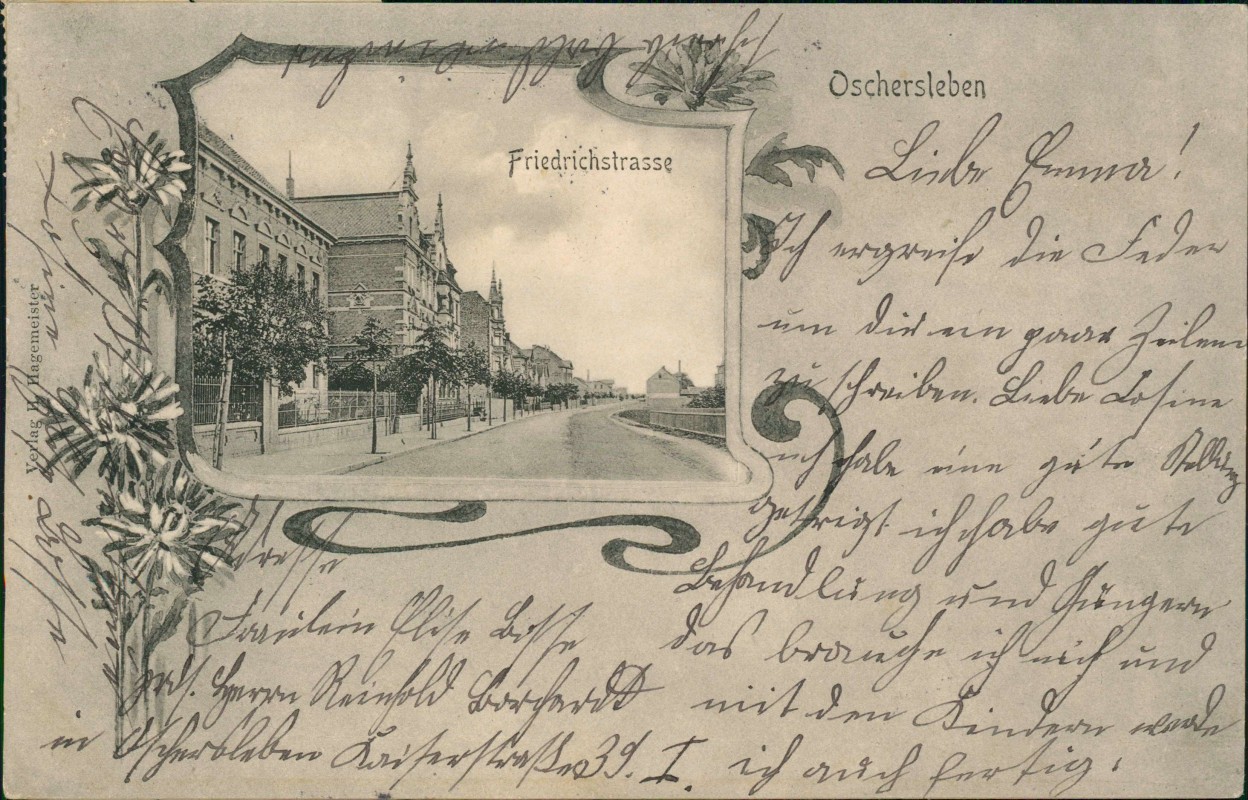 Oschersleben
Friedrichstrasse
Verlag H. Hagemeister
Liebe Emma!
Ich ergreife die Feder
um dir ein paar Zeilen
zu schreiben. Liebe Cosine
ich habe eine gute Stellung
gekrigt ich habe gute
Behandlung und Hungern
das brauche ich nich und
mit den Kindern werde
ich auch fertig.
Adresse
Fräulein Elise Bosse
Herrn Reinhold Borchardt
in Oschersleben Kaiserstraße 39. I.